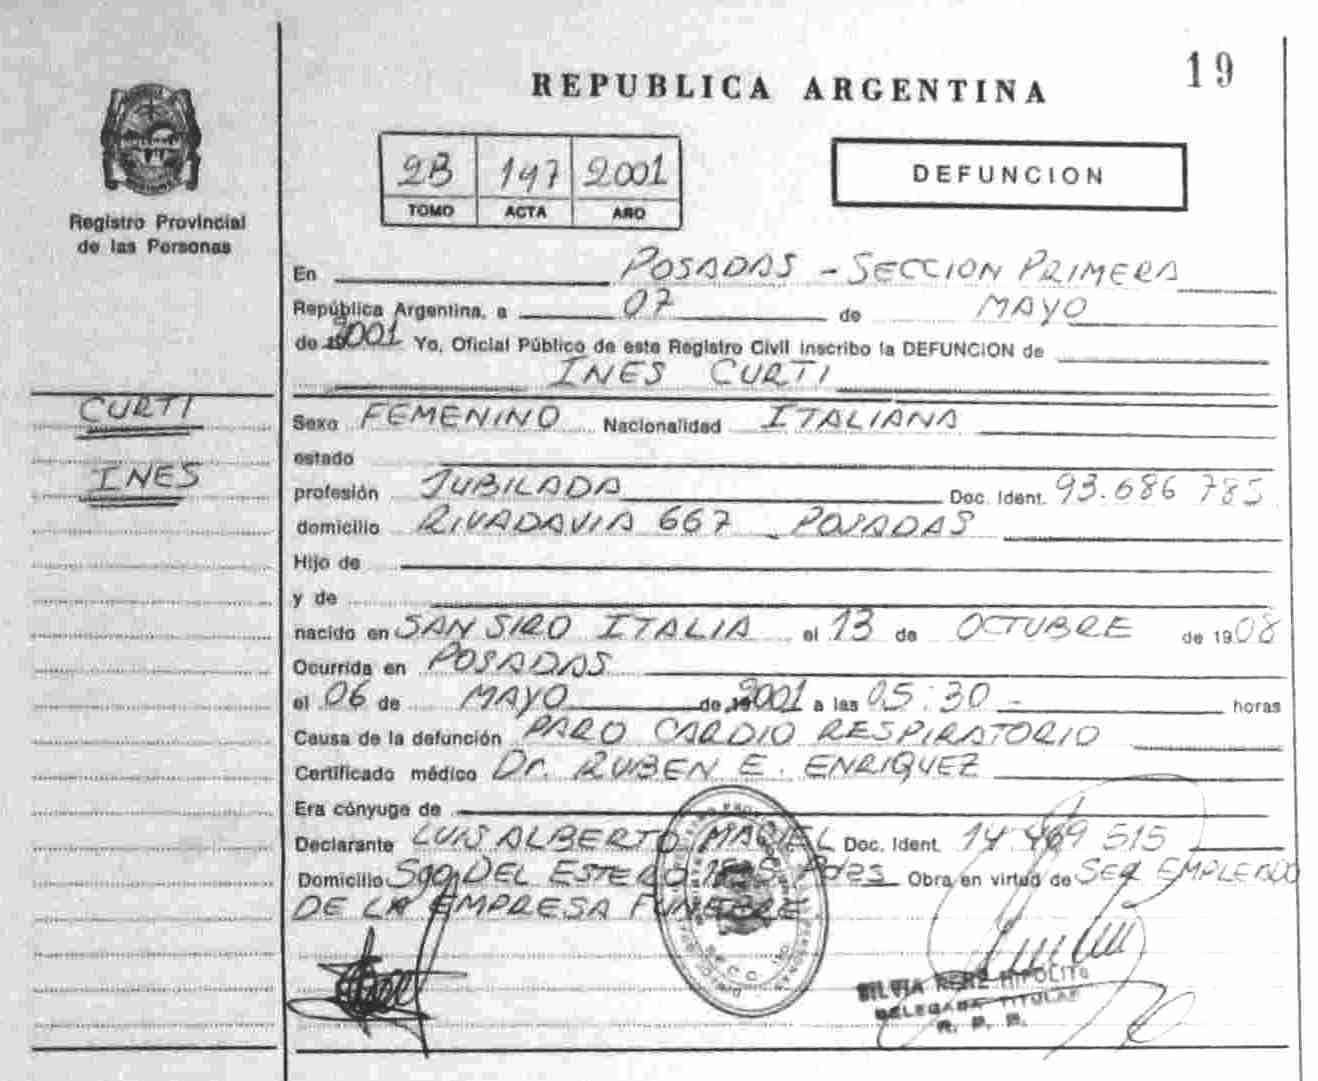 19
REPUBLICA ARGENTINA
Registro Provincial
de las Personas
2B 147 2001
TOMO ACTA AÑO
DEFUNCION
En POSADAS - SECCION PRIMERA
República Argentina, a 07 de MAYO
de 2001 Yo, Oficial Público de este Registro Civil inscribo la DEFUNCION de
INES CURTI
CURTI
INES
Sexo FEMENINO Nacionalidad ITALIANA
estado
profesión JUBILADA Doc. Ident. 93.686 785
domicilio RIVADAVIA 667 - POSADAS
Hijo de
y de
nacido en SAN SIRO ITALIA el 13 de OCTUBRE de 1908
Ocurrida en POSADAS
el 06 de MAYO de 2001 a las 05:30 - horas
Causa de la defunción PARO CARDIO RESPIRATORIO
Certificado médico Dr. RUBEN E. ENRIQUEZ
Era cónyuge de
Declarante LUIS ALBERTO MACIEL Doc. Ident. 14.469 515
Domicilio Sgo DEL ESTERO Pdas Obra en virtud de SER EMPLEADO
DE LA EMPRESA FUNEBRE
SILVIA HIPOLITO
DELEGADA TITULAR
R. P. P.